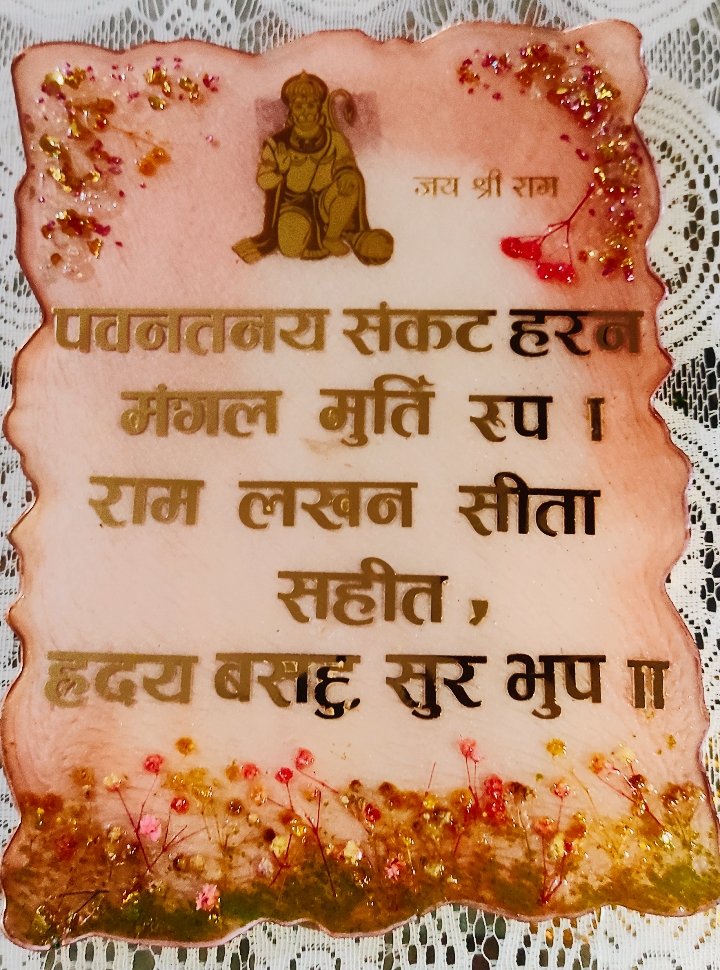 जय श्री राम
पवनतनय संकट हरन
मंगल मुर्ति रूप ।
राम लखन सीता
सहीत ,
हृदय बसहु सुर भुप ॥